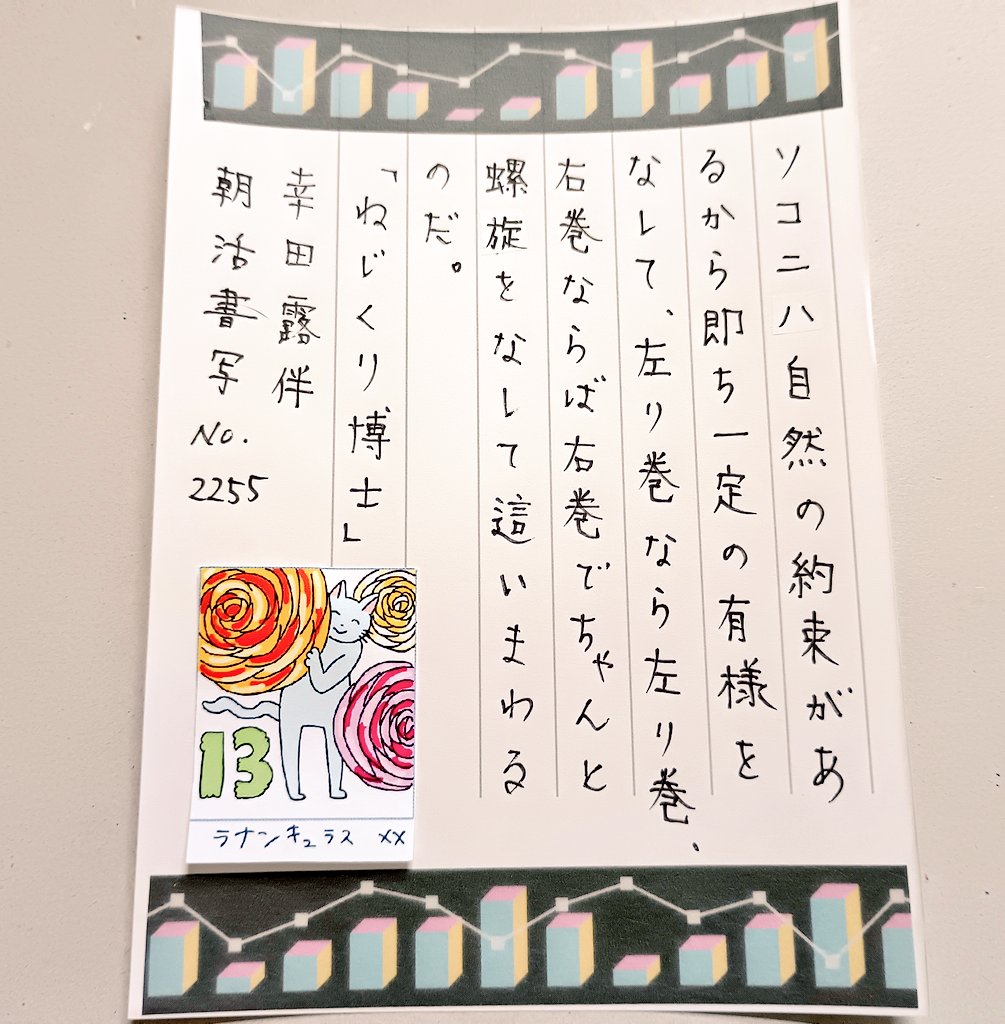 ソコニハ自然の約束があ
るから即ち一定の有様を
なして、左り巻なら左り巻、
右巻ならば右巻でちゃんと
螺旋をなして這いまわる
のだ。
「ねじくり博士」
幸田露伴
朝活書写
No.
2255
13
ラナンキュラス xx